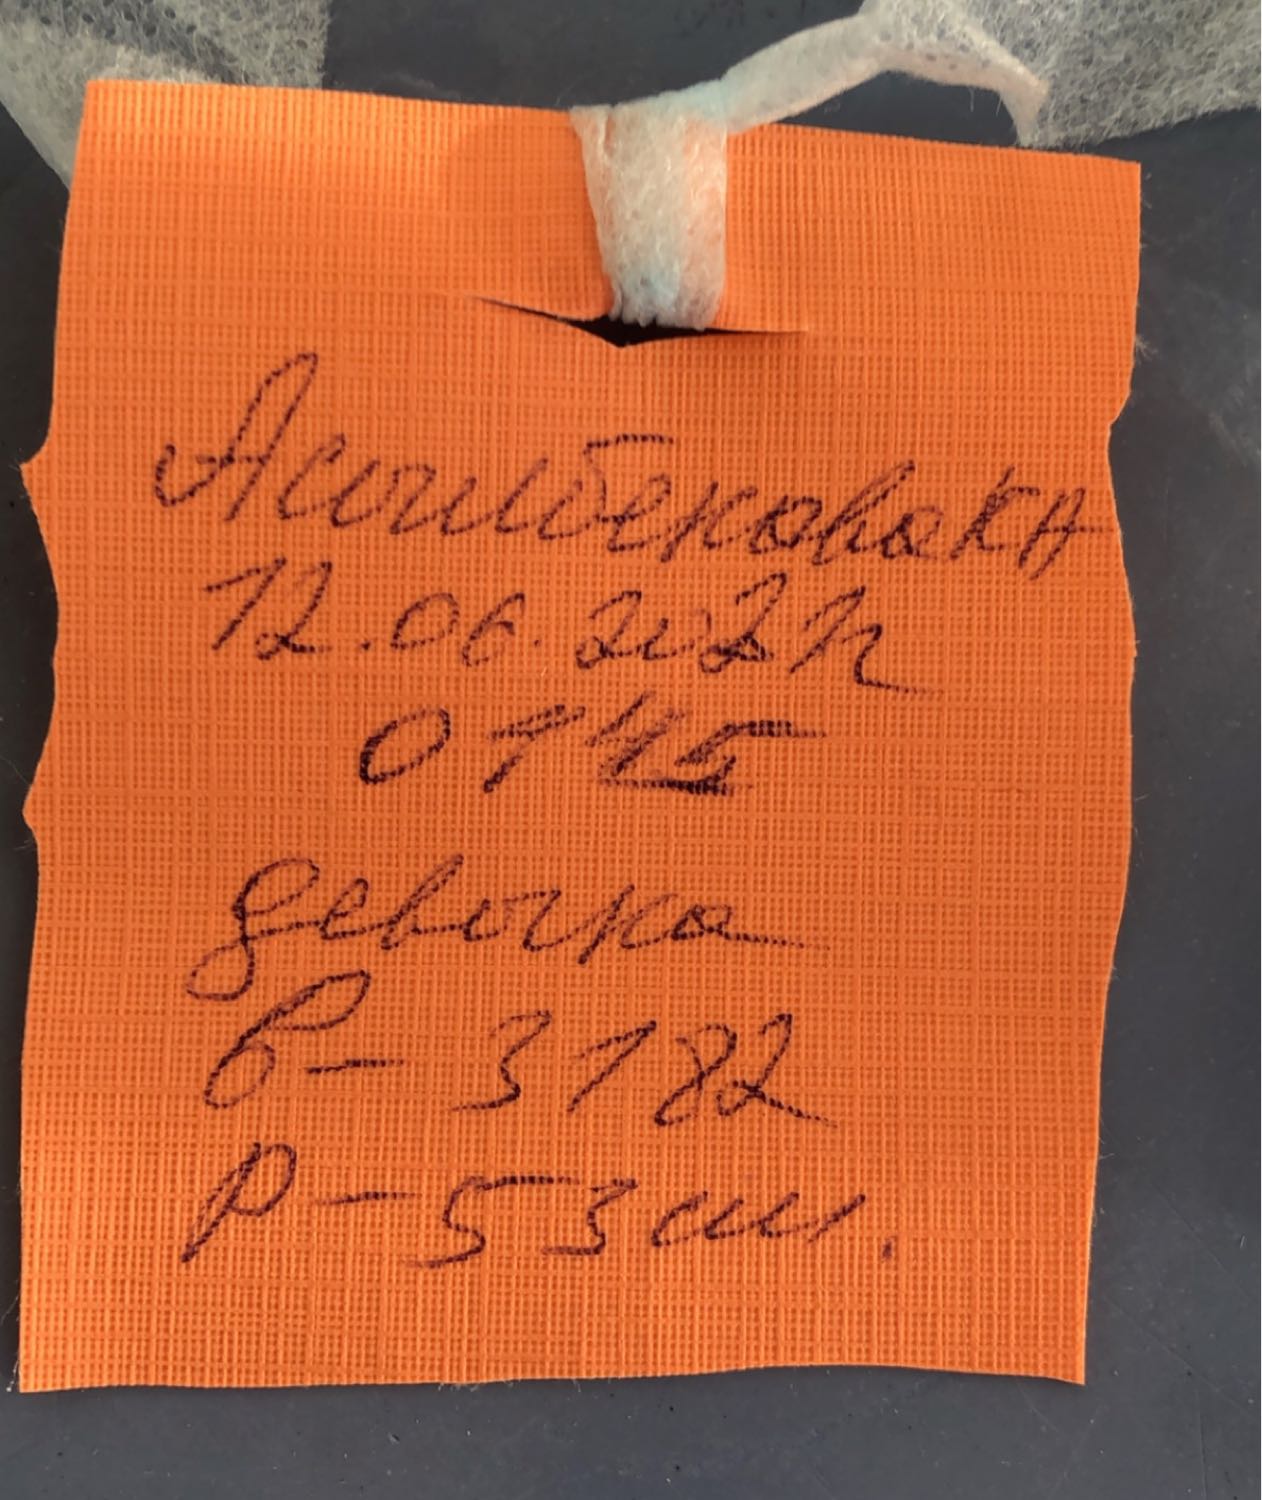 Асылбекова К А
12.06.2021г
01 45
девочка
В - 3182
Р - 53 см.